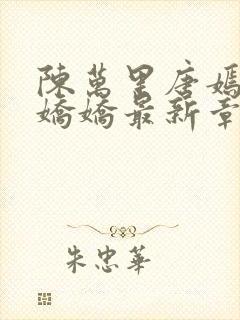 陳萬里唐嫣
嬌嬌最新章
朱忠華